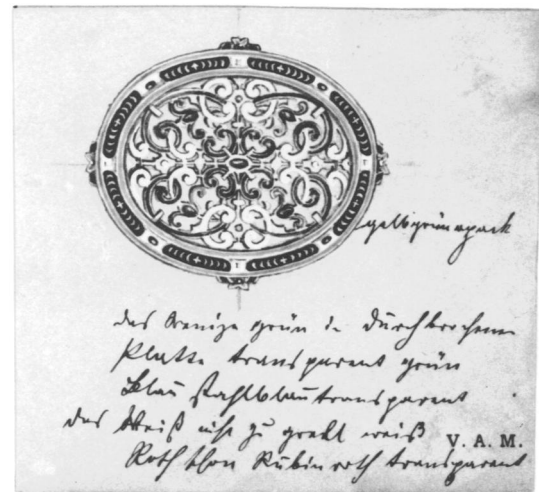 gelbgrün opack
das Wenige grün in durchbrochener
Platte transparent grün
Blau stahlblau transparent
das Weiß nicht zu grell weiß
V. A. M.
Roth schön Rubinroth transparent